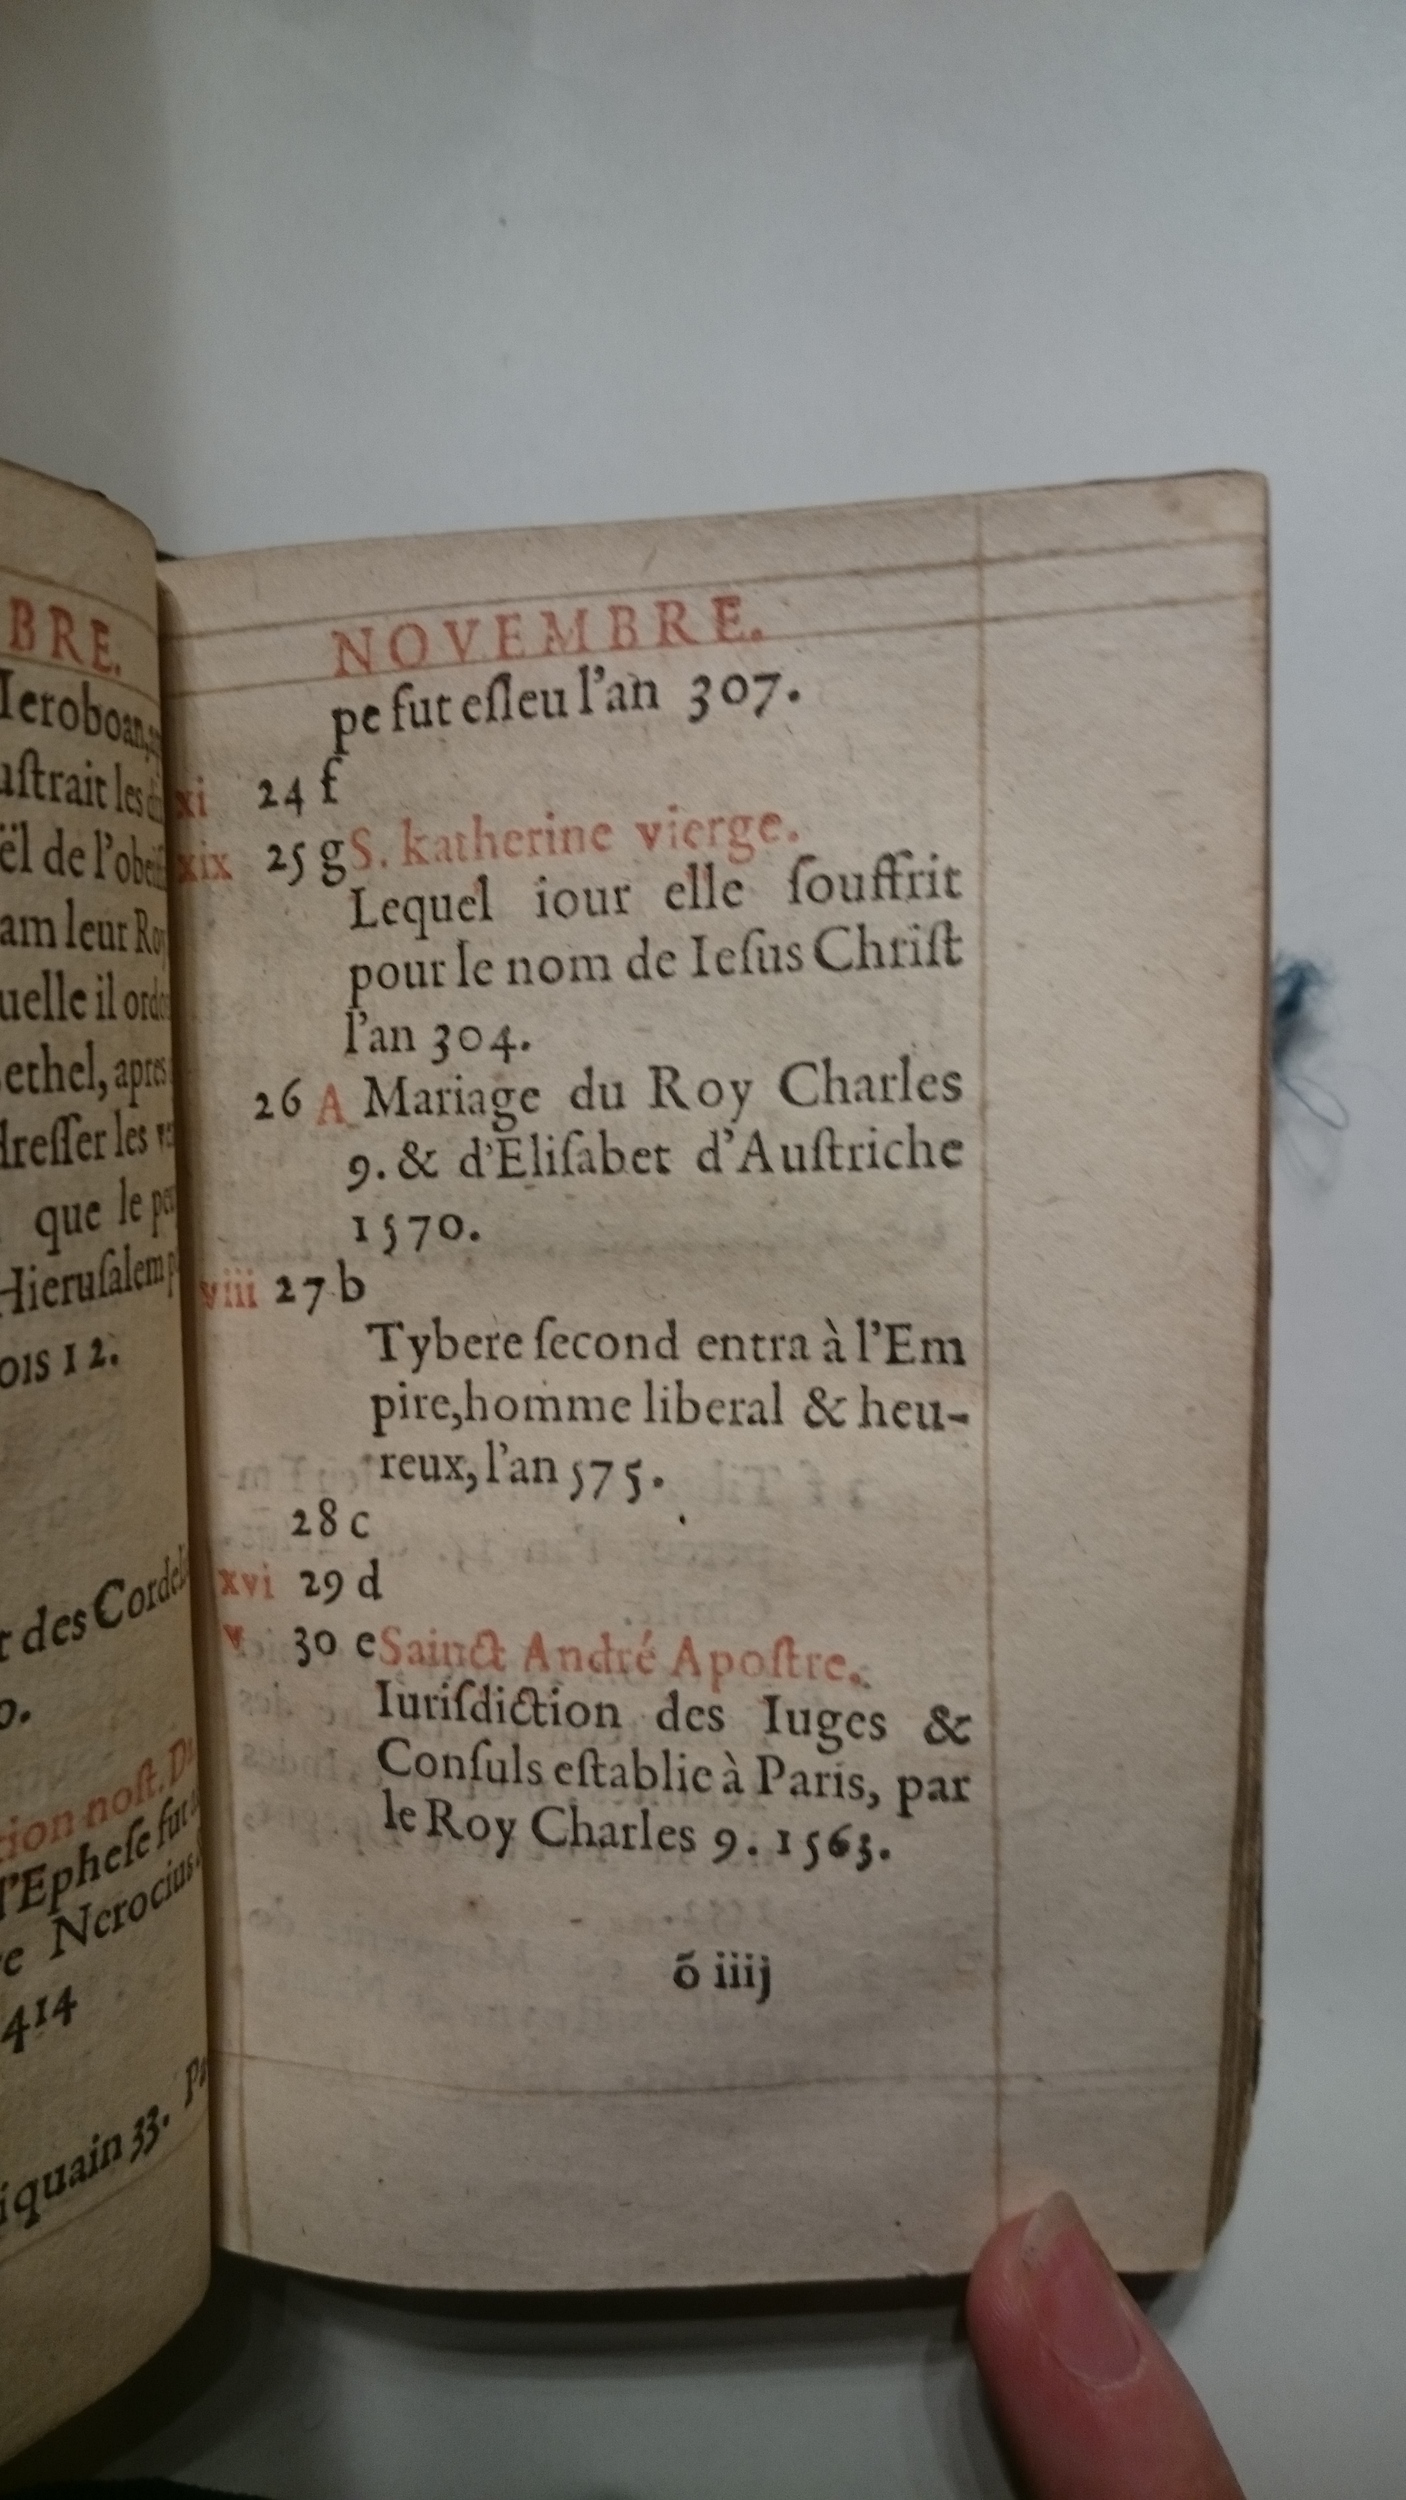 BRE.
Ieroboan,
uſtrait les
ël de l'obeiſ
am leur Roy
uelle il ordo
ethel, apres
dreſſer les
que le peu
Hieruſalem
ois 12.
r des Cordel
0.
tion noſt. D
l'Epheſe fut
re Nerocius
414
iquain 33. Pa
NOVEMBRE.
pe fut eſleu l'an 307.
xi 24 f
xix 25 g S. katherine vierge.
Lequel iour elle ſouffrit
pour le nom de Ieſus Chriſt
l'an 304.
26 A Mariage du Roy Charles
9. & d'Eliſabet d'Auſtriche
1570.
viii 27 b
Tybere ſecond entra à l'Em
pire, homme liberal & heu-
reux, l'an 575.
28 c
xvi 29 d
v 30 e Sainct André Apoſtre.
Iuriſdiction des Iuges &
Conſuls eſtablie à Paris, par
le Roy Charles 9. 1563.
õ iiij